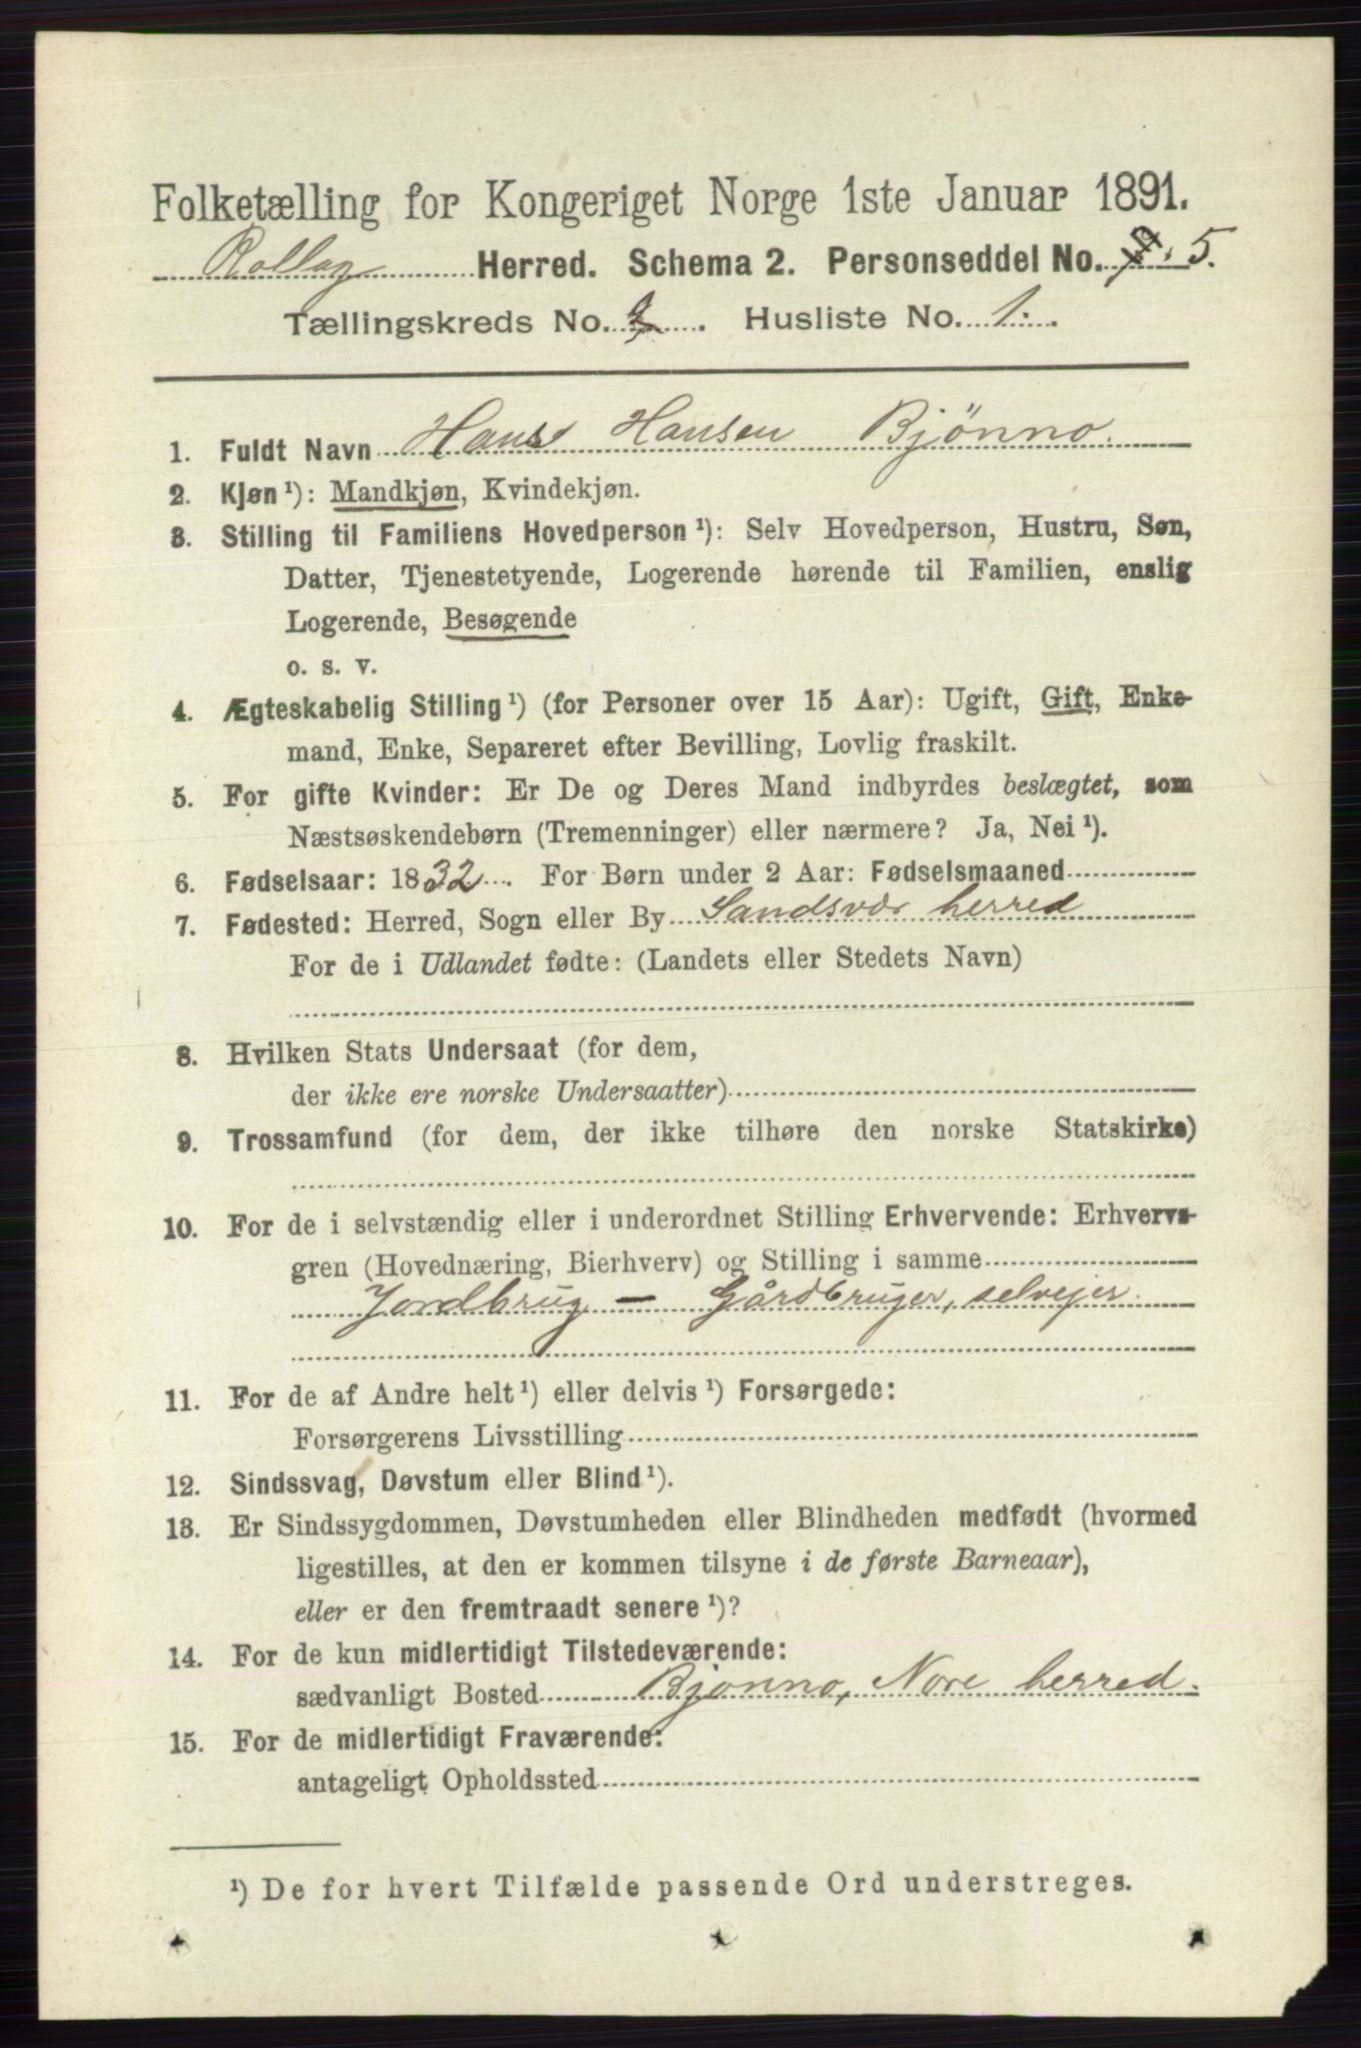 Folketælling for Kongeriget Norge 1ste Januar 1891.
Rollag Herred. Schema 2. Personseddel No. 5.
Tællingskreds No. Husliste No. 1.
1. Fuldt Navn Hans Hansen Bjønno.
2. Kjøn¹): Mandkjøn, Kvindekjøn.
3. Stilling til Familiens Hovedperson¹): Selv Hovedperson, Hustru, Søn,
Datter, Tjenestetyende, Logerende hørende til Familien, enslig
Logerende, Besøgende
o. s. v.
4. Ægteskabelig Stilling¹) (for Personer over 15 Aar): Ugift, Gift, Enke-
mand, Enke, Separeret efter Bevilling, Lovlig fraskilt.
5. For gifte Kvinder: Er De og Deres Mand indbyrdes beslægtet, som
Næstsøskendebørn (Tremenninger) eller nærmere? Ja, Nei¹).
6. Fødselsaar: 1832. For Børn under 2 Aar: Fødselsmaaned
7. Fødested: Herred, Sogn eller By Sandsvær herred
For de i Udlandet fødte: (Landets eller Stedets Navn)
8. Hvilken Stats Undersaat (for dem,
der ikke ere norske Undersaatter)
9. Trossamfund (for dem, der ikke tilhøre den norske Statskirke)
10. For de i selvstændig eller i underordnet Stilling Erhvervende: Erhvervs-
gren (Hovednæring, Bierhverv) og Stilling i samme
Jordbrug — Gårdbruger, selvejer.
11. For de af Andre helt¹) eller delvis¹) Forsørgede:
Forsørgerens Livsstilling
12. Sindssvag, Døvstum eller Blind¹).
13. Er Sindssygdommen, Døvstumheden eller Blindheden medfødt (hvormed
ligestilles, at den er kommen tilsyne i de første Barneaar),
eller er den fremtraadt senere¹)?
14. For de kun midlertidigt Tilstedeværende:
sædvanligt Bosted Bjønno, Nore herred.
15. For de midlertidigt Fraværende:
antageligt Opholdssted
¹) De for hvert Tilfælde passende Ord understreges.